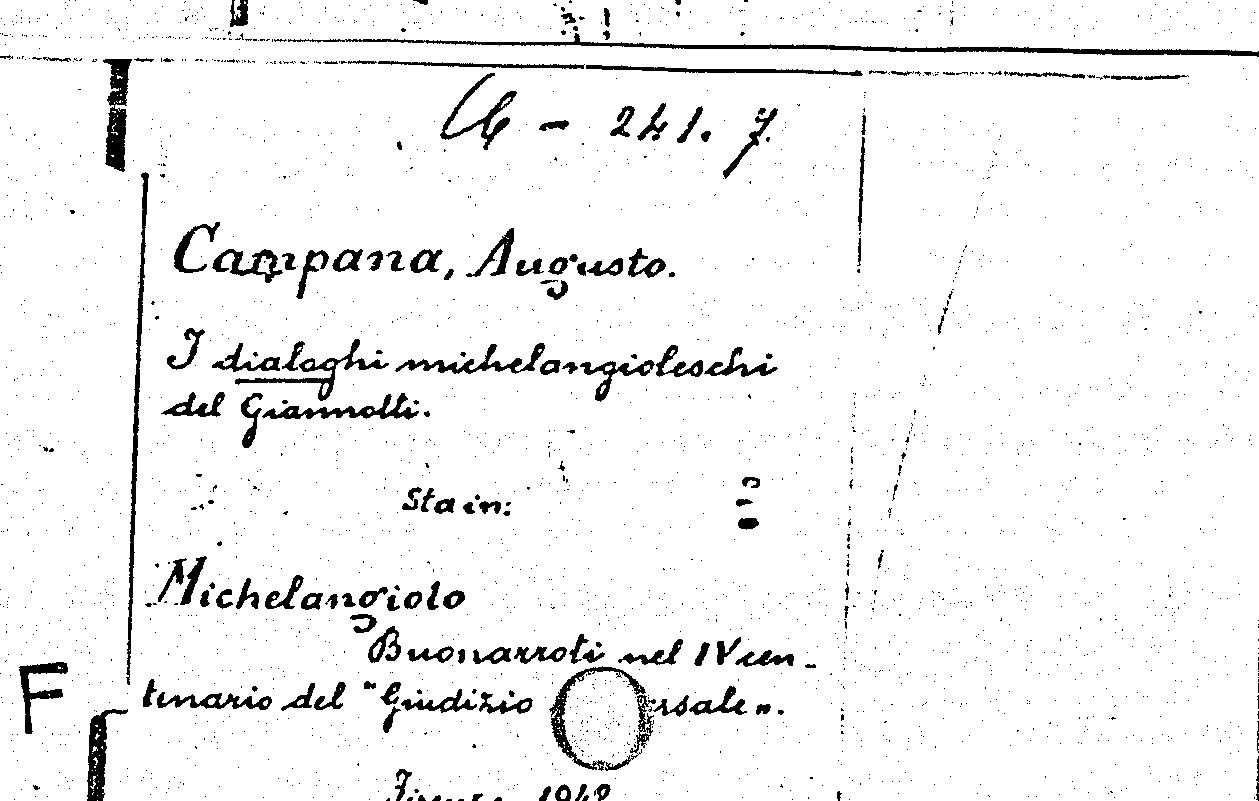 - 241. 7
Campana, Augusto.
I dialoghi michelangioleschi
del Giannotti.
Sta in:
Michelangiolo
Buonarroti nel IV cen-
F
tenario del "Giudizio rsale".
Firenze, 1942